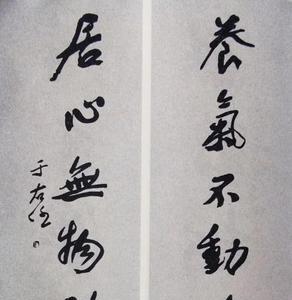 養氣不動
居心無物
于右任